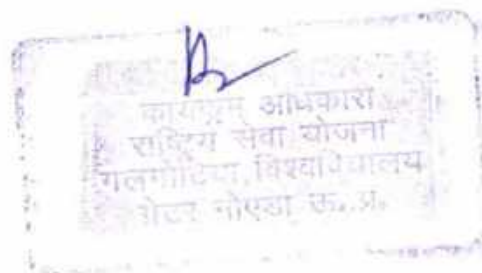 कार्यक्रम अधिकारी
राष्ट्रिय सेवा योजना
गलगोटिया, विश्वविद्यालय
ग्रेटर नोएडा ऊ.प्र.